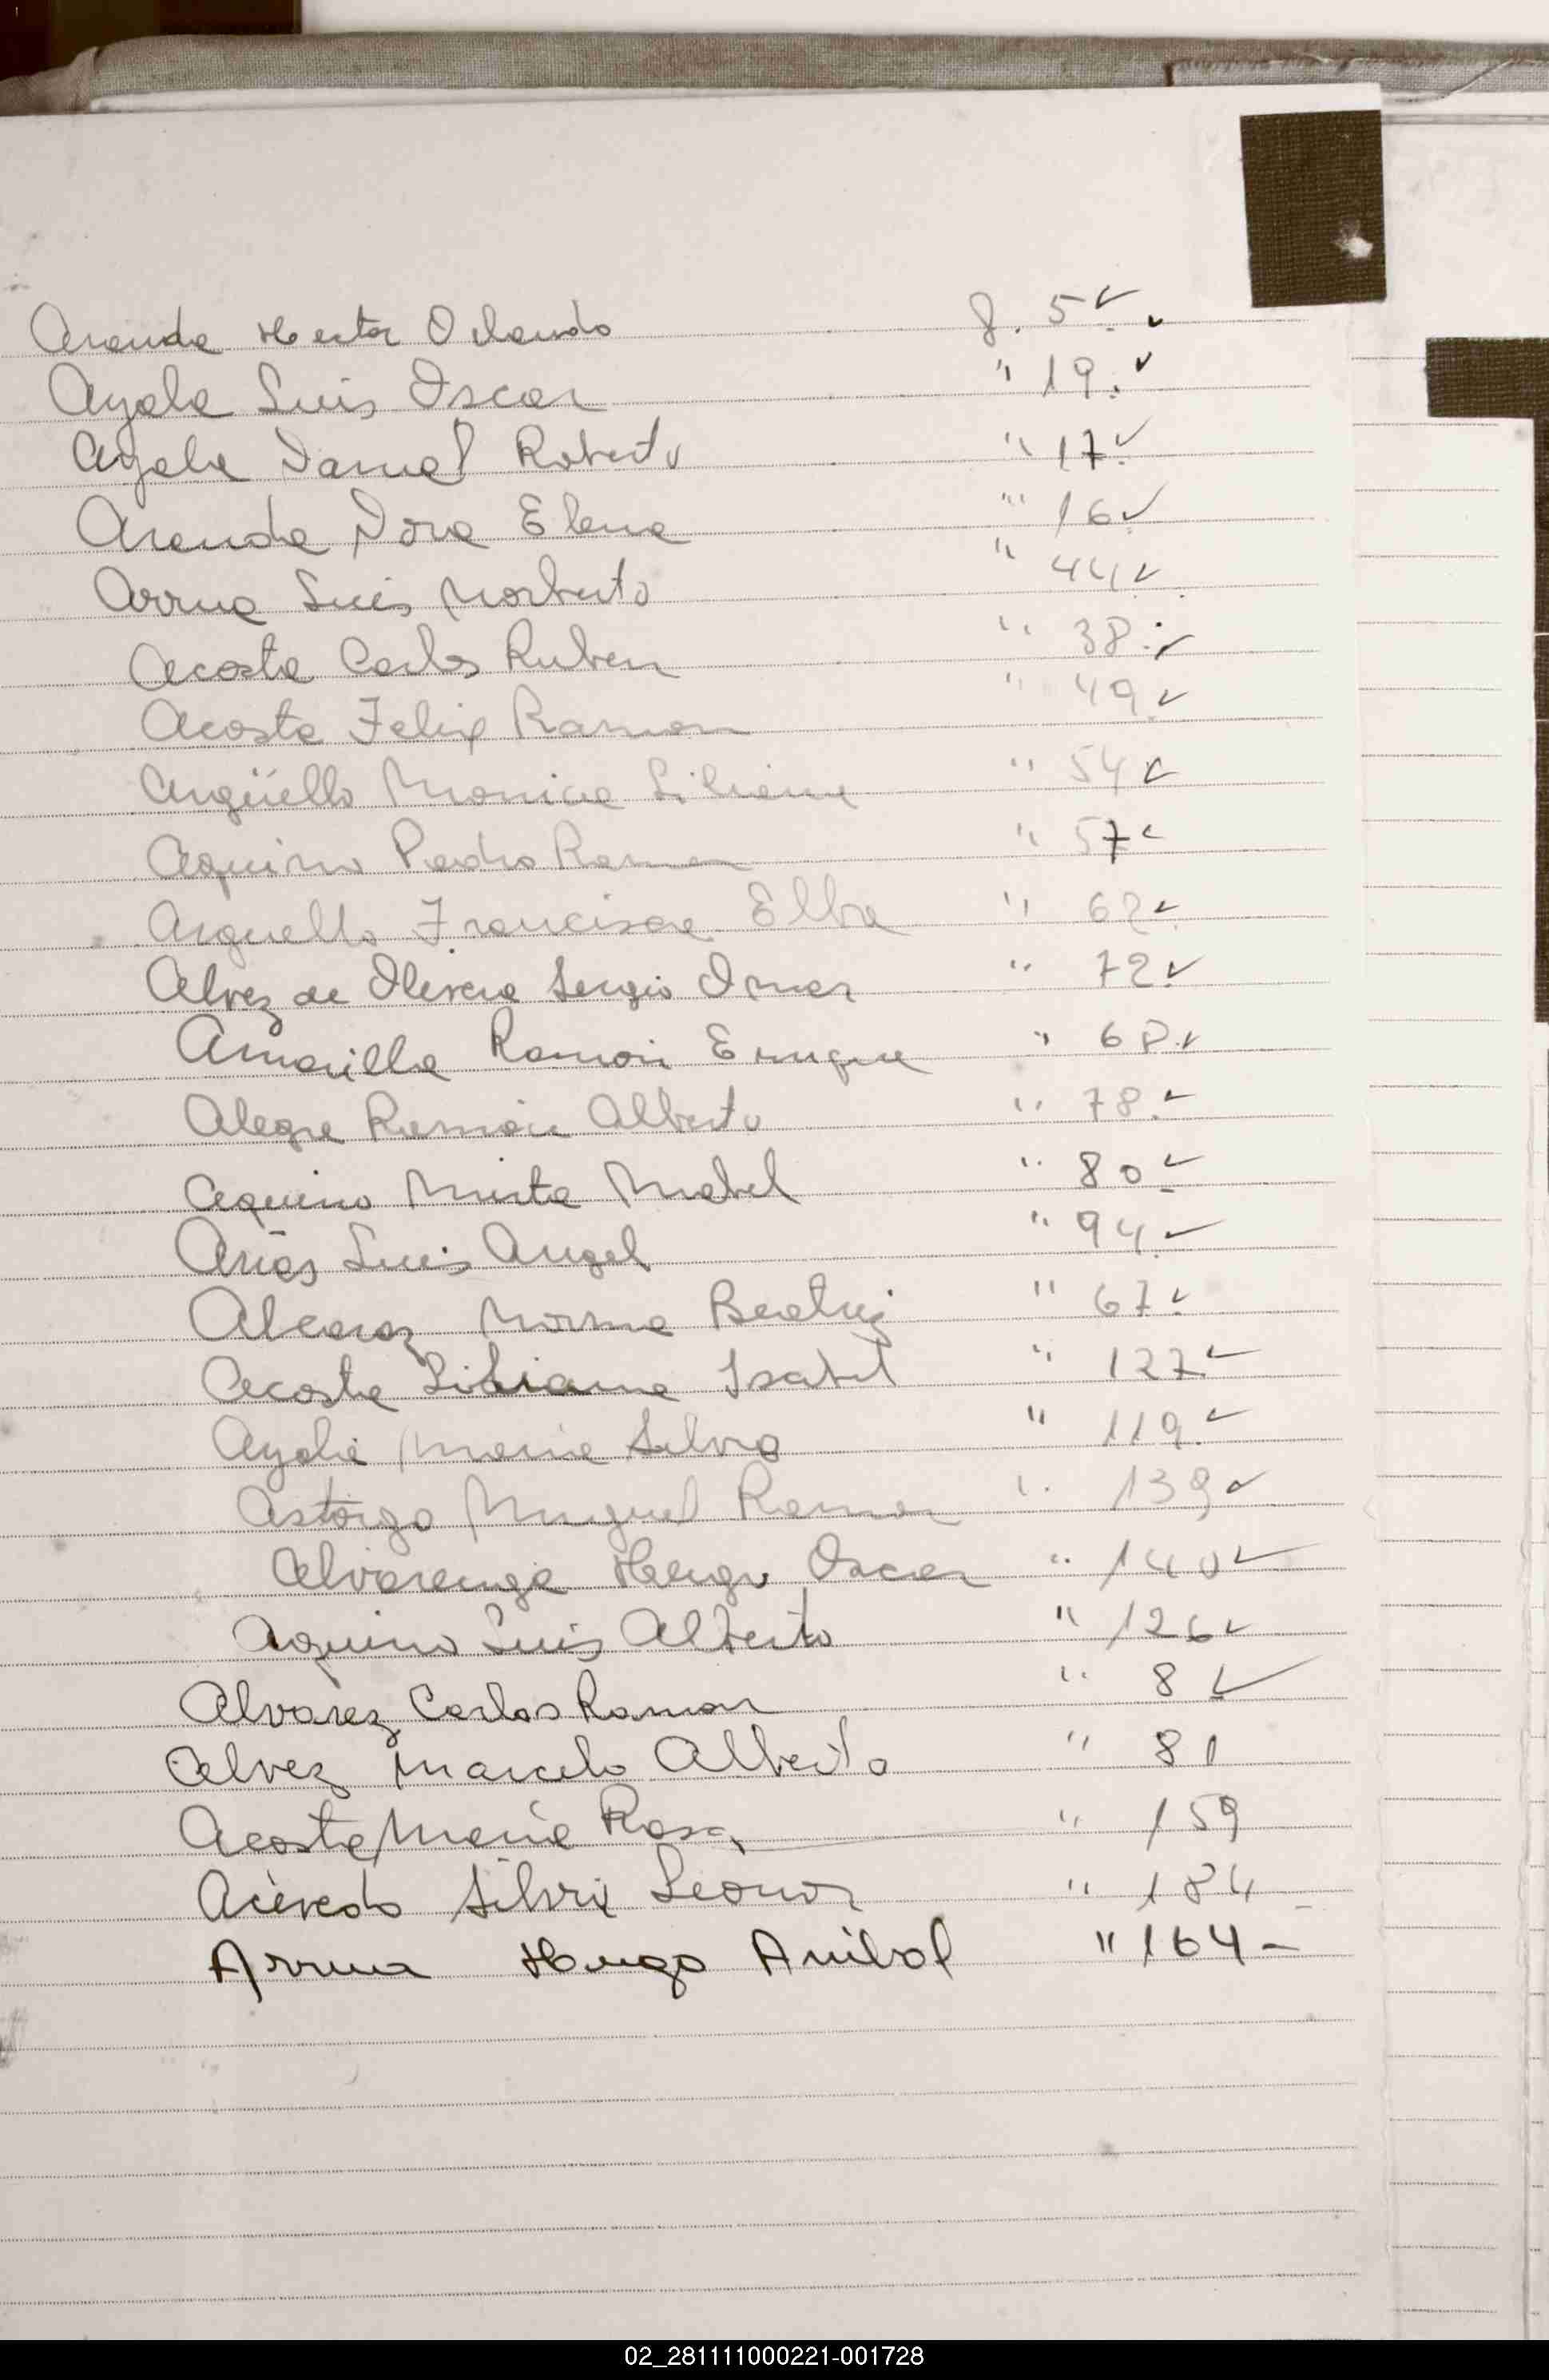 Aranda Hector Orlando f. 5 ✓
Ayala Luis Oscar " 19. ✓
Ayala Daniel Roberto " 17. ✓
Aranda Dora Elena " 16 ✓
Arrua Luis Norberto " 44 ✓
Acosta Carlos Ruben " 38. ✓
Acosta Felix Ramon " 49 ✓
Argüello Monica Liliana " 54 ✓
Aquino Pedro Ramon " 57 ✓
Arguello Francisca Elba " 62 ✓
Alvez de Olivera Sergio Omar " 72 ✓
Amarilla Ramon Enrique " 68. ✓
Alegre Ramón Alberto " 78. ✓
Aquino Mirta Mabel " 80 ✓
Arias Luis Angel " 94. ✓
Alcaraz Norma Beatriz " 67. ✓
Acosta Liliana Isabel " 127. ✓
Ayala Maria Silvia " 119. ✓
Astorga Miguel Ramon " 139 ✓
Alvarenga Hugo Oscar " 140 ✓
Aquino Luis Alberto " 126 ✓
Alvarez Carlos Ramon " 8 ✓
Alvez Marcelo Alberto " 81
Acosta Maria Rosa " 159
Acevedo Silvia Leonor " 184
Arrua Hugo Anibal " 164 -
02_281111000221-001728